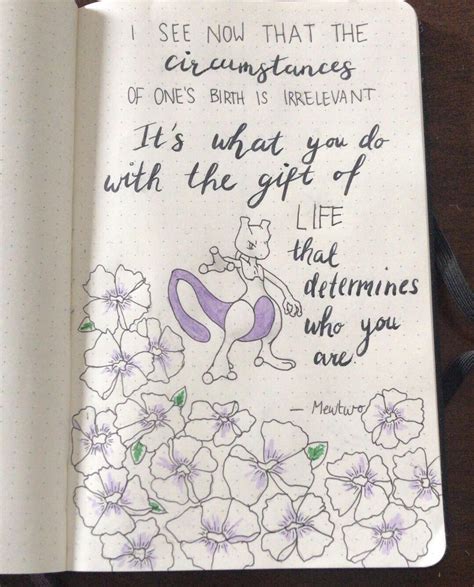 I SEE NOW THAT THE
circumstances
OF ONE'S BIRTH IS IRRELEVANT
It's what you do
with the gift of
LIFE
that
determines
who you
are.
- Mewtwo